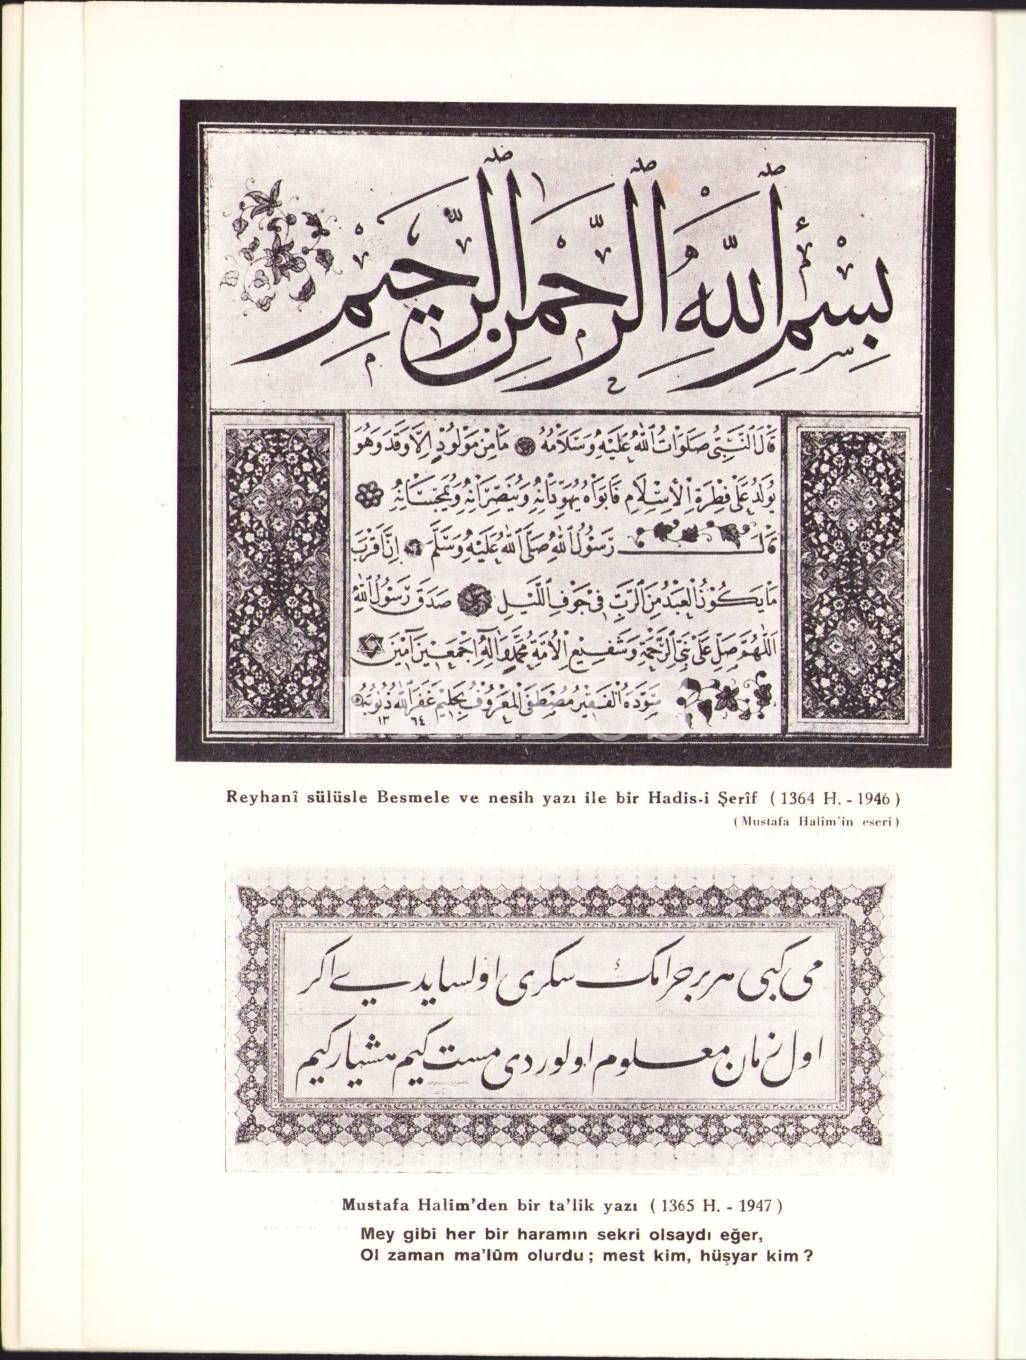 بسم الله الرحمن الرحيم
قال النبي صلوات الله عليه وسلامه ما من مولود إلا وقد وهو
يولد على فطرة الإسلام فابواه يهودانه وينصرانه ويمجسانه
قال رسول الله صلى الله عليه وسلم إن أقرب
ما يكون العبد من الرب في جوف الليل صدق رسول الله
اللهم صل على نبي الرحمة وشفيع الأمة محمد وآله أجمعين آمين
سوده الفقير مصطفى المعروف بحليم غفر الله ذنوبه
١٣٦٤
Reyhanî sülüsle Besmele ve nesih yazı ile bir Hadis-i Şerîf (1364 H. - 1946)
(Mustafa Halim'in eseri)
می کبی هر بر حرامک سکری اولسایدی اکر
اول زمان معلوم اولوردی مست کیم هشیار کیم
Mustafa Halim'den bir ta'lik yazı (1365 H. - 1947)
Mey gibi her bir haramın sekri olsaydı eğer,
Ol zaman ma'lûm olurdu; mest kim, hüşyar kim?